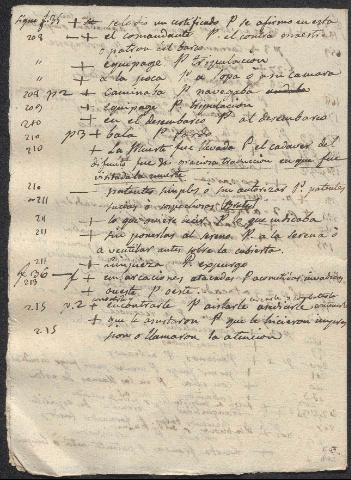 sigue f. 35 + se le dio un certificado P se afirmo en esta
208 — + el comandante P el contra maestre
ó patron del barco
" + equipage P tripulacion
" + a la poca P a popa ó a su camara
208 p 2 + caminaba P navegaba
209 + equipage P tripulacion
210 + en el desembarco P al desembarco
210 p 3 + bala P fardo
210 + La Muerte fue llevada P el cadaver del
difunto fue graciosa traduccion en que fue
la muerte
210 — patentes simples ó sin autorizar P patentes
211 sucias ó sospechosas
211 + lo que quiere decir P lo que indicaba
211 + sin ponerlas al sereno P a la serena ó
a ventilar antes sobre la cubierta
211 + limpieza P espurgo
f. 36 — + embarcaciones atacadas P acometidas invadidas
213 + oueste P oeste
215 p. 2 + encontrarle P aislarle
215 + que asustaron P que le hicieron impre
sion ó llamaron la atencion